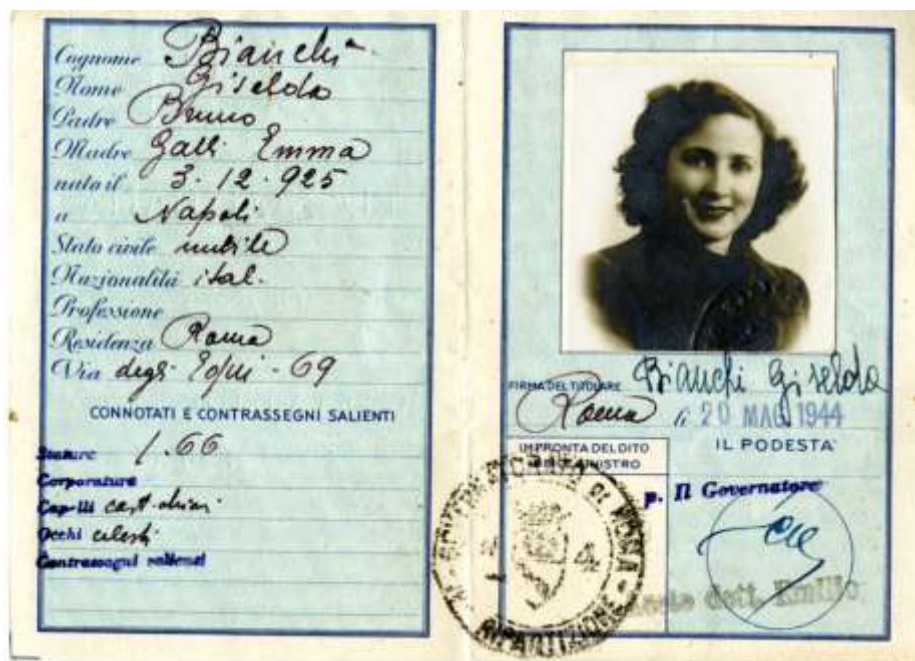 Cognome Bianchi
Nome Giselda
Padre Bruno
Madre Galli Emma
nata il 3 · 12 · 925
a Napoli
Stato civile nubile
Nazionalità ital.
Professione
Residenza Roma
Via degli Equi - 69
CONNOTATI E CONTRASSEGNI SALIENTI
Statura 1.66
Corporatura
Capelli cast. chiari
Occhi celesti
Contrassegni salienti
FIRMA DEL TITOLARE Bianchi Giselda
Roma li 20 MAG 1944
IMPRONTA DEL DITO
INDICE SINISTRO
IL PODESTA'
p. Il Governatore
GOVERNATORATO DI ROMA
4
RIPARTIZIONE
dott. Emilio